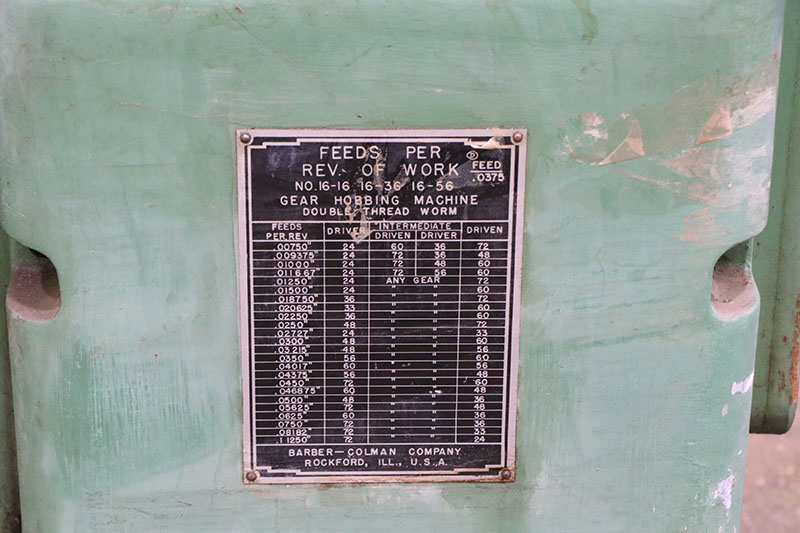 FEEDS PER
REV. OF WORK
D FEED
.0375
NO. 16-16 16-36 16-56
GEAR HOBBING MACHINE
DOUBLE THREAD WORM
FEEDS PER.REV. DRIVER INTERMEDIATE DRIVEN DRIVER DRIVEN
.00750" 24 60 36 72
.009375" 24 72 36 48
.01000" 24 72 48 60
.011667" 24 72 56 60
.01250" 24 ANY GEAR 72
.01500" 24 " " 60
.018750" 36 " " 72
.020625" 33 " " 60
.02250" 36 " " 60
.0250" 48 " " 72
.02727" 24 " " 33
.0300" 48 " " 60
.03215" 48 " " 56
.0350" 56 " " 60
.04017" 60 " " 56
.04375" 56 " " 48
.0450" 72 " " 60
.046875" 60 " " 48
.0500" 48 " " 36
.05625" 72 " " 48
.0625" 60 " " 36
.0750" 72 " " 36
.08182" 72 " " 33
.11250" 72 " " 24
BARBER—COLMAN COMPANY
ROCKFORD, ILL., U.S.A.